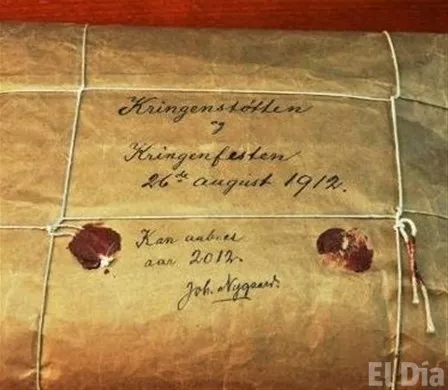 Kringenstøtten
og
Kringenfesten
26de august 1912.
Kan aabnes
aar 2012.
Joh. Nygaard.
El Día